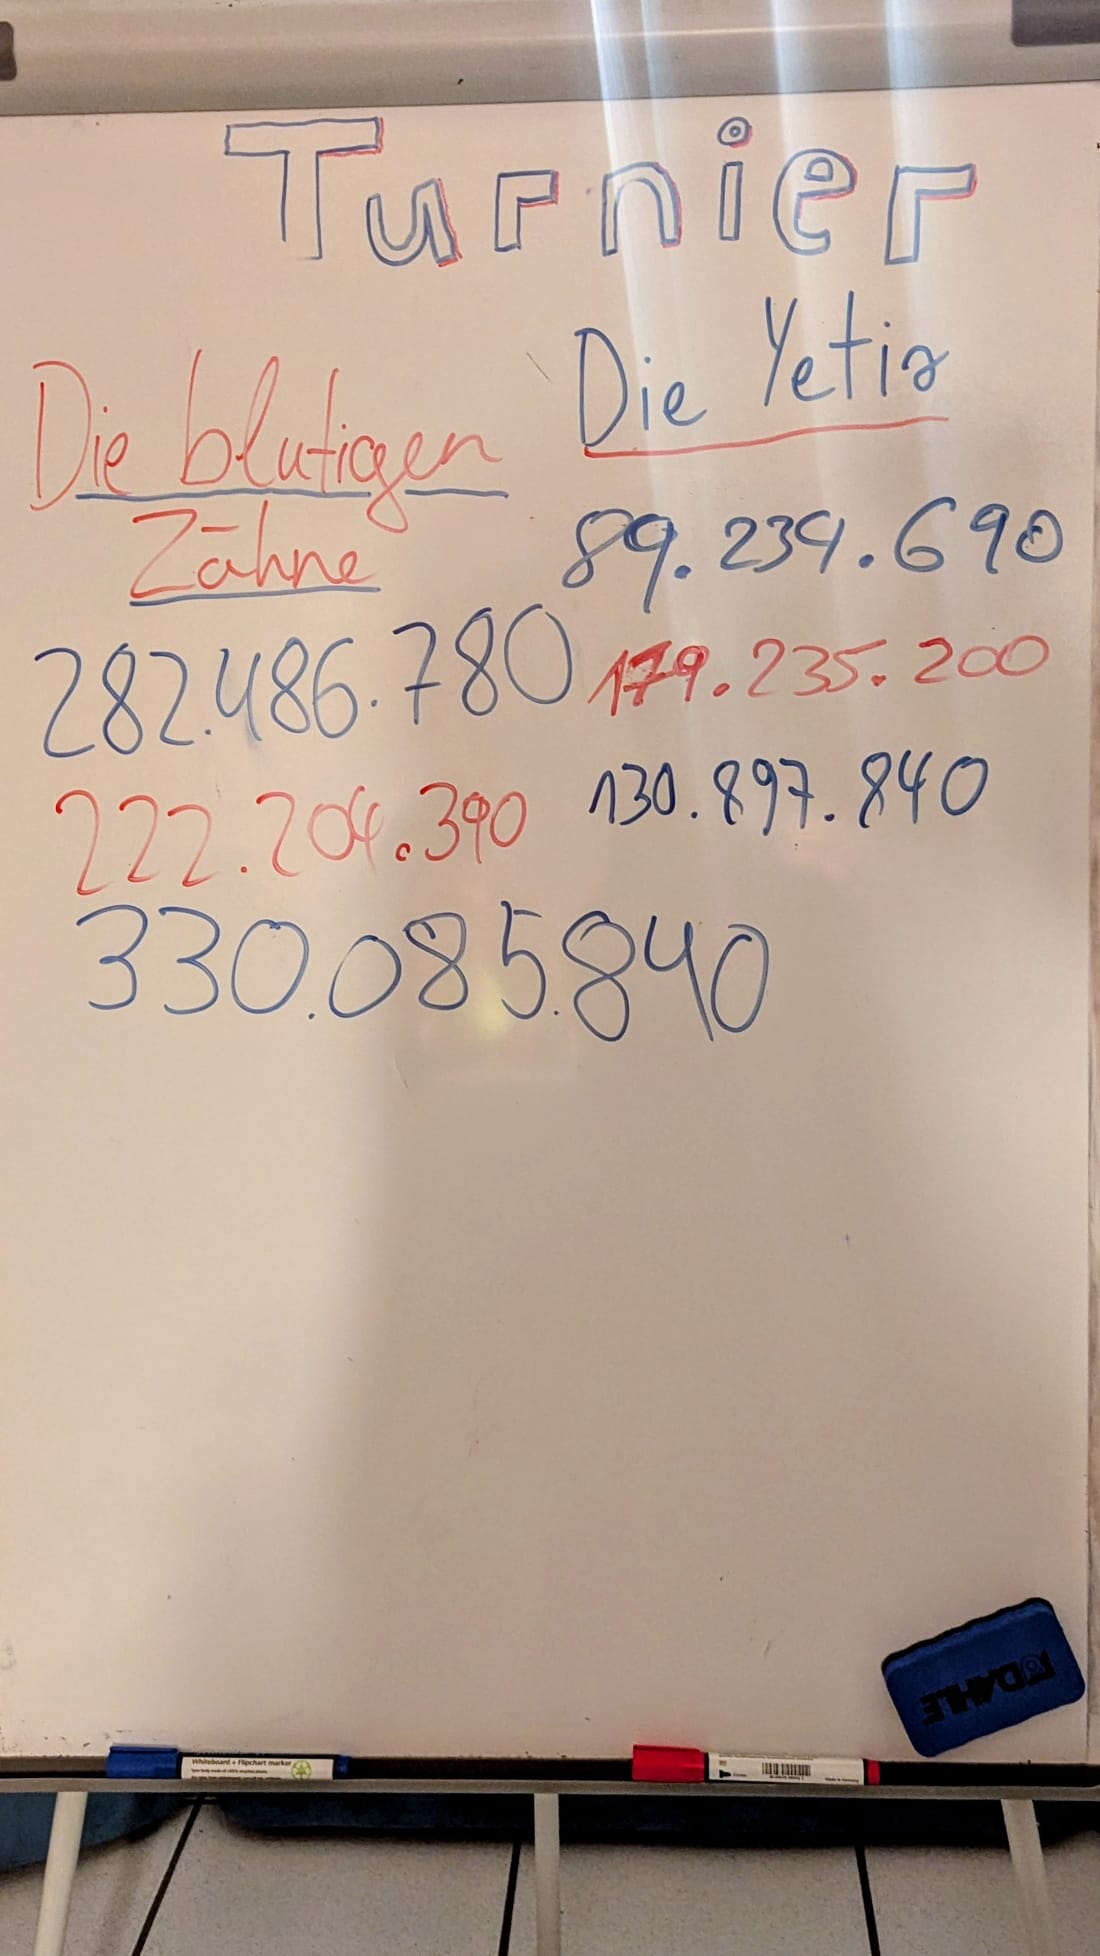 Turnier
Die blutigen
Zähne
282.486.780
222.204.390
330.085.840
Die Yetis
89.234.690
179.235.200
130.897.840
DAHLE
Whiteboard + Flipchart marker